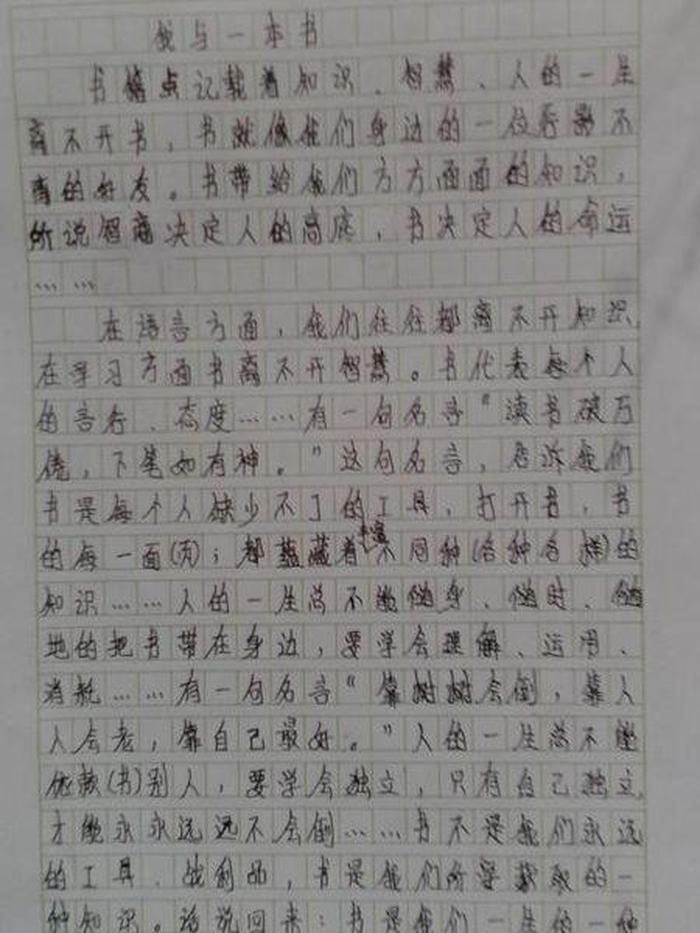 我与一本书
书籍点记载着知识、智慧、人的一生
离不开书，书就像我们身边的一位形影不
离的好友。书带给我们方方面面的知识，
所说智商决定人的高底，书决定人的命运
……
在语言方面，我们往往都离不开知识，
在学习方面书离不开智慧。书代表每个人
的言行、态度……有一句名言“读书破万
卷，下笔如有神。”这句名言，告诉我们
书是每个人缺少不了的工具，打开书，书
的每一面(页)；都蕴藏着丰富不同种(各种各样)的
知识……人的一生总不能随身、随时、随
地的把书带在身边，要学会理解、运用、
消耗……有一句名言“靠树树会倒，靠人
人会老，靠自己最好。”人的一生总不能
依赖(书)别人，要学会独立，只有自己独立，
才能永永远远不会倒……书不是我们永远
的工具、战利品，书是我们所学获取的一
种知识。话说回来：书是我们一生的一种